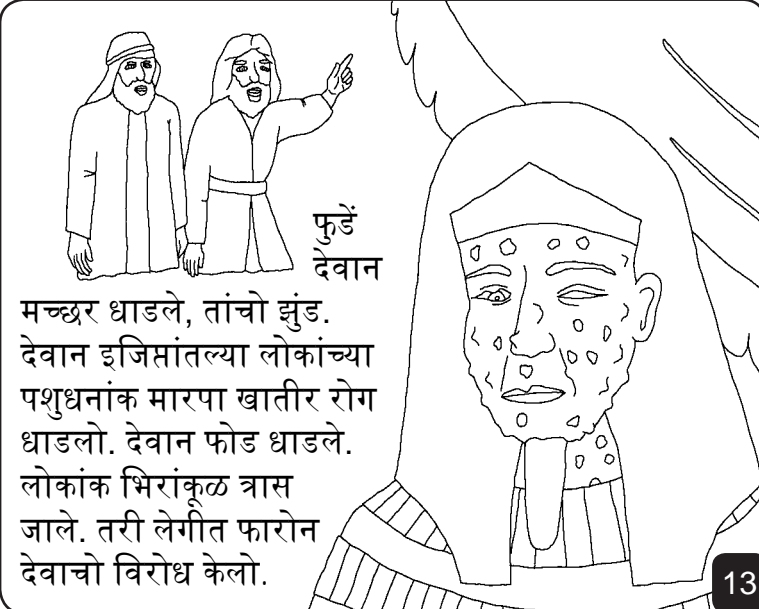 फुडें
देवान
मच्छर धाडले, तांचो झुंड.
देवान इजिप्तांतल्या लोकांच्या
पशुधनांक मारपा खातीर रोग
धाडलो. देवान फोड धाडले.
लोकांक भिरांकूळ त्रास
जाले. तरी लेगीत फारोन
देवाचो विरोध केलो.
13